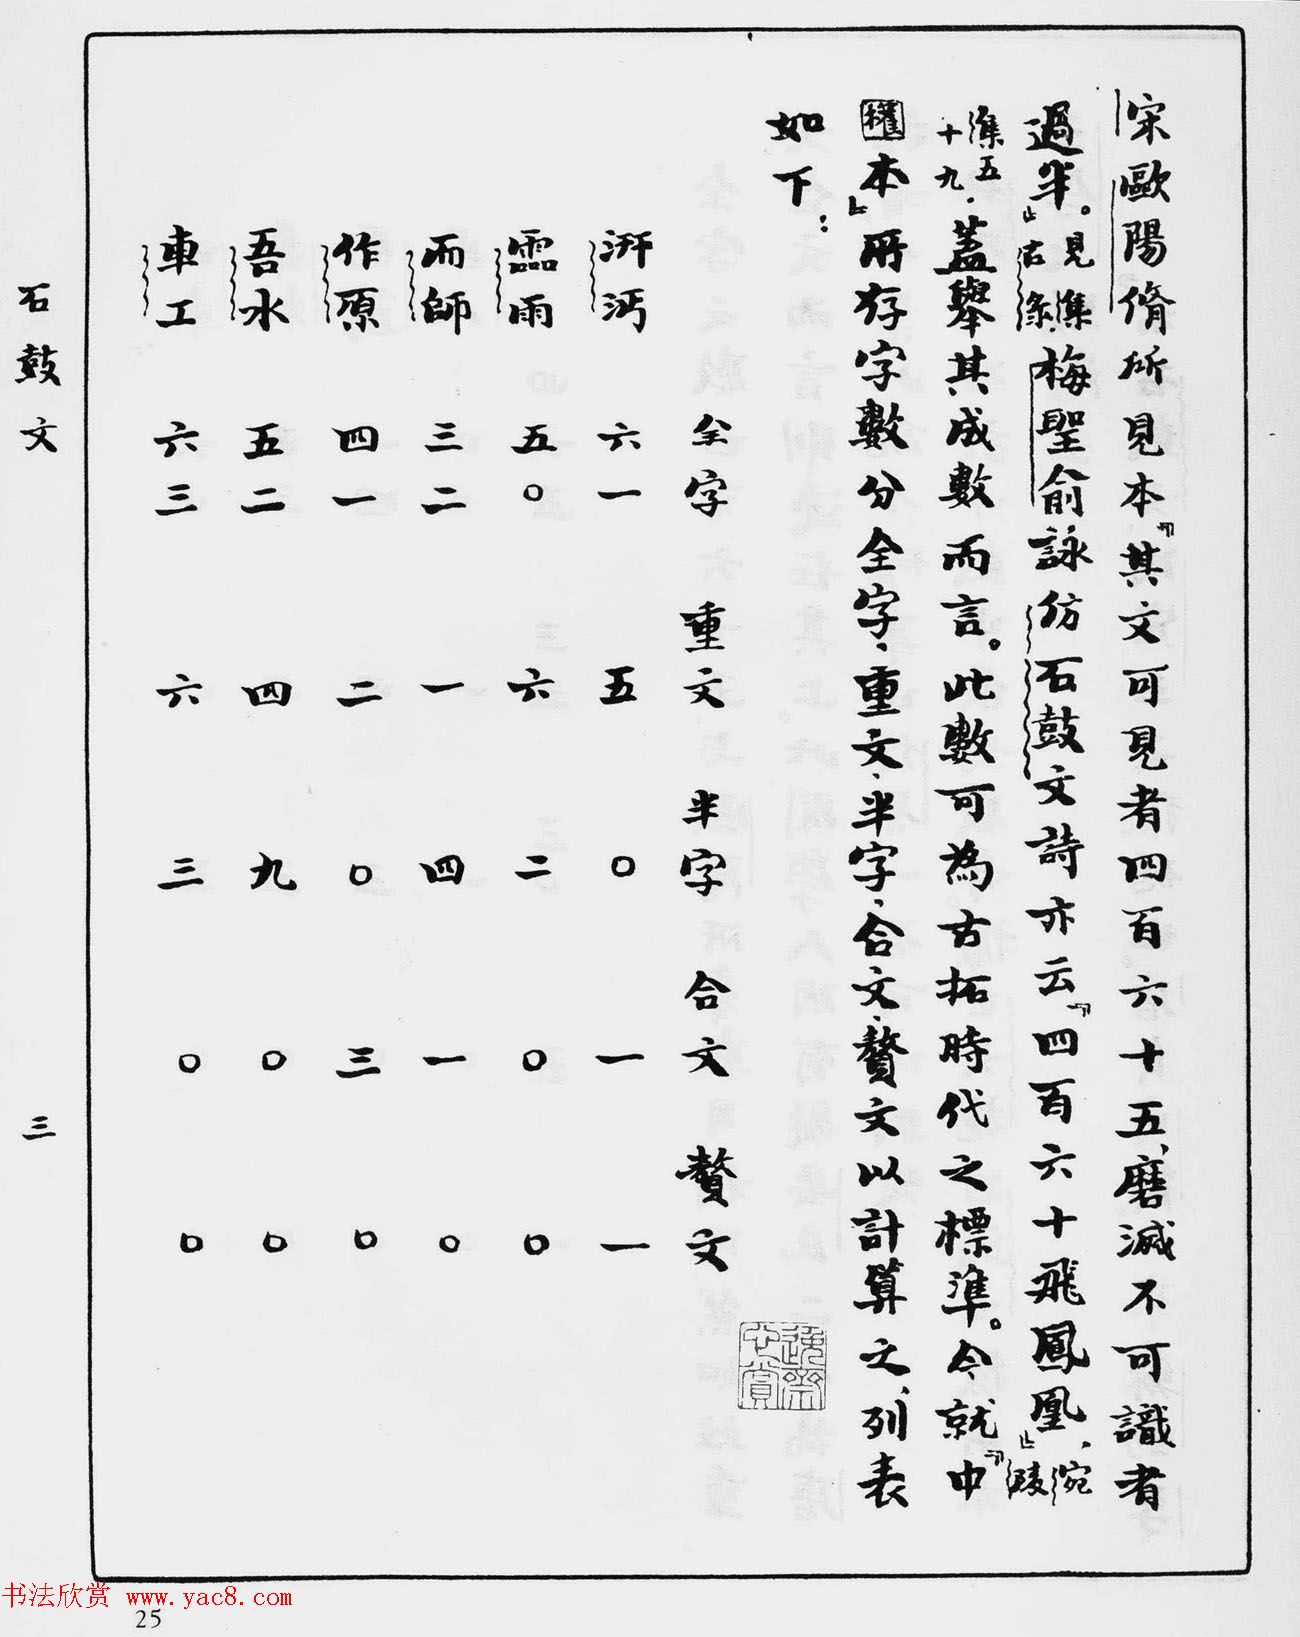 宋歐陽脩所見本『其文可見者四百六十五、磨滅不可識者
過半。』見集古錄.梅聖俞詠仿石鼓文詩亦云『四百六十飛鳳凰、』宛陵
集五十九.蓋舉其成數而言。此數可為古拓時代之標準。今就『中
權本』所存字數分全字、重文、半字、合文、贅文以計算之、列表
如下：
全字 重文 半字 合文 贅文
汧沔 六一 五 〇 一 一
霝雨 五〇 六 二 〇 〇
而師 三二 一 四 一 〇
作原 四一 二 〇 三 〇
吾水 五二 四 九 〇 〇
車工 六三 六 三 〇 〇
石鼓文 三
书法欣赏 www.yac8.com
25